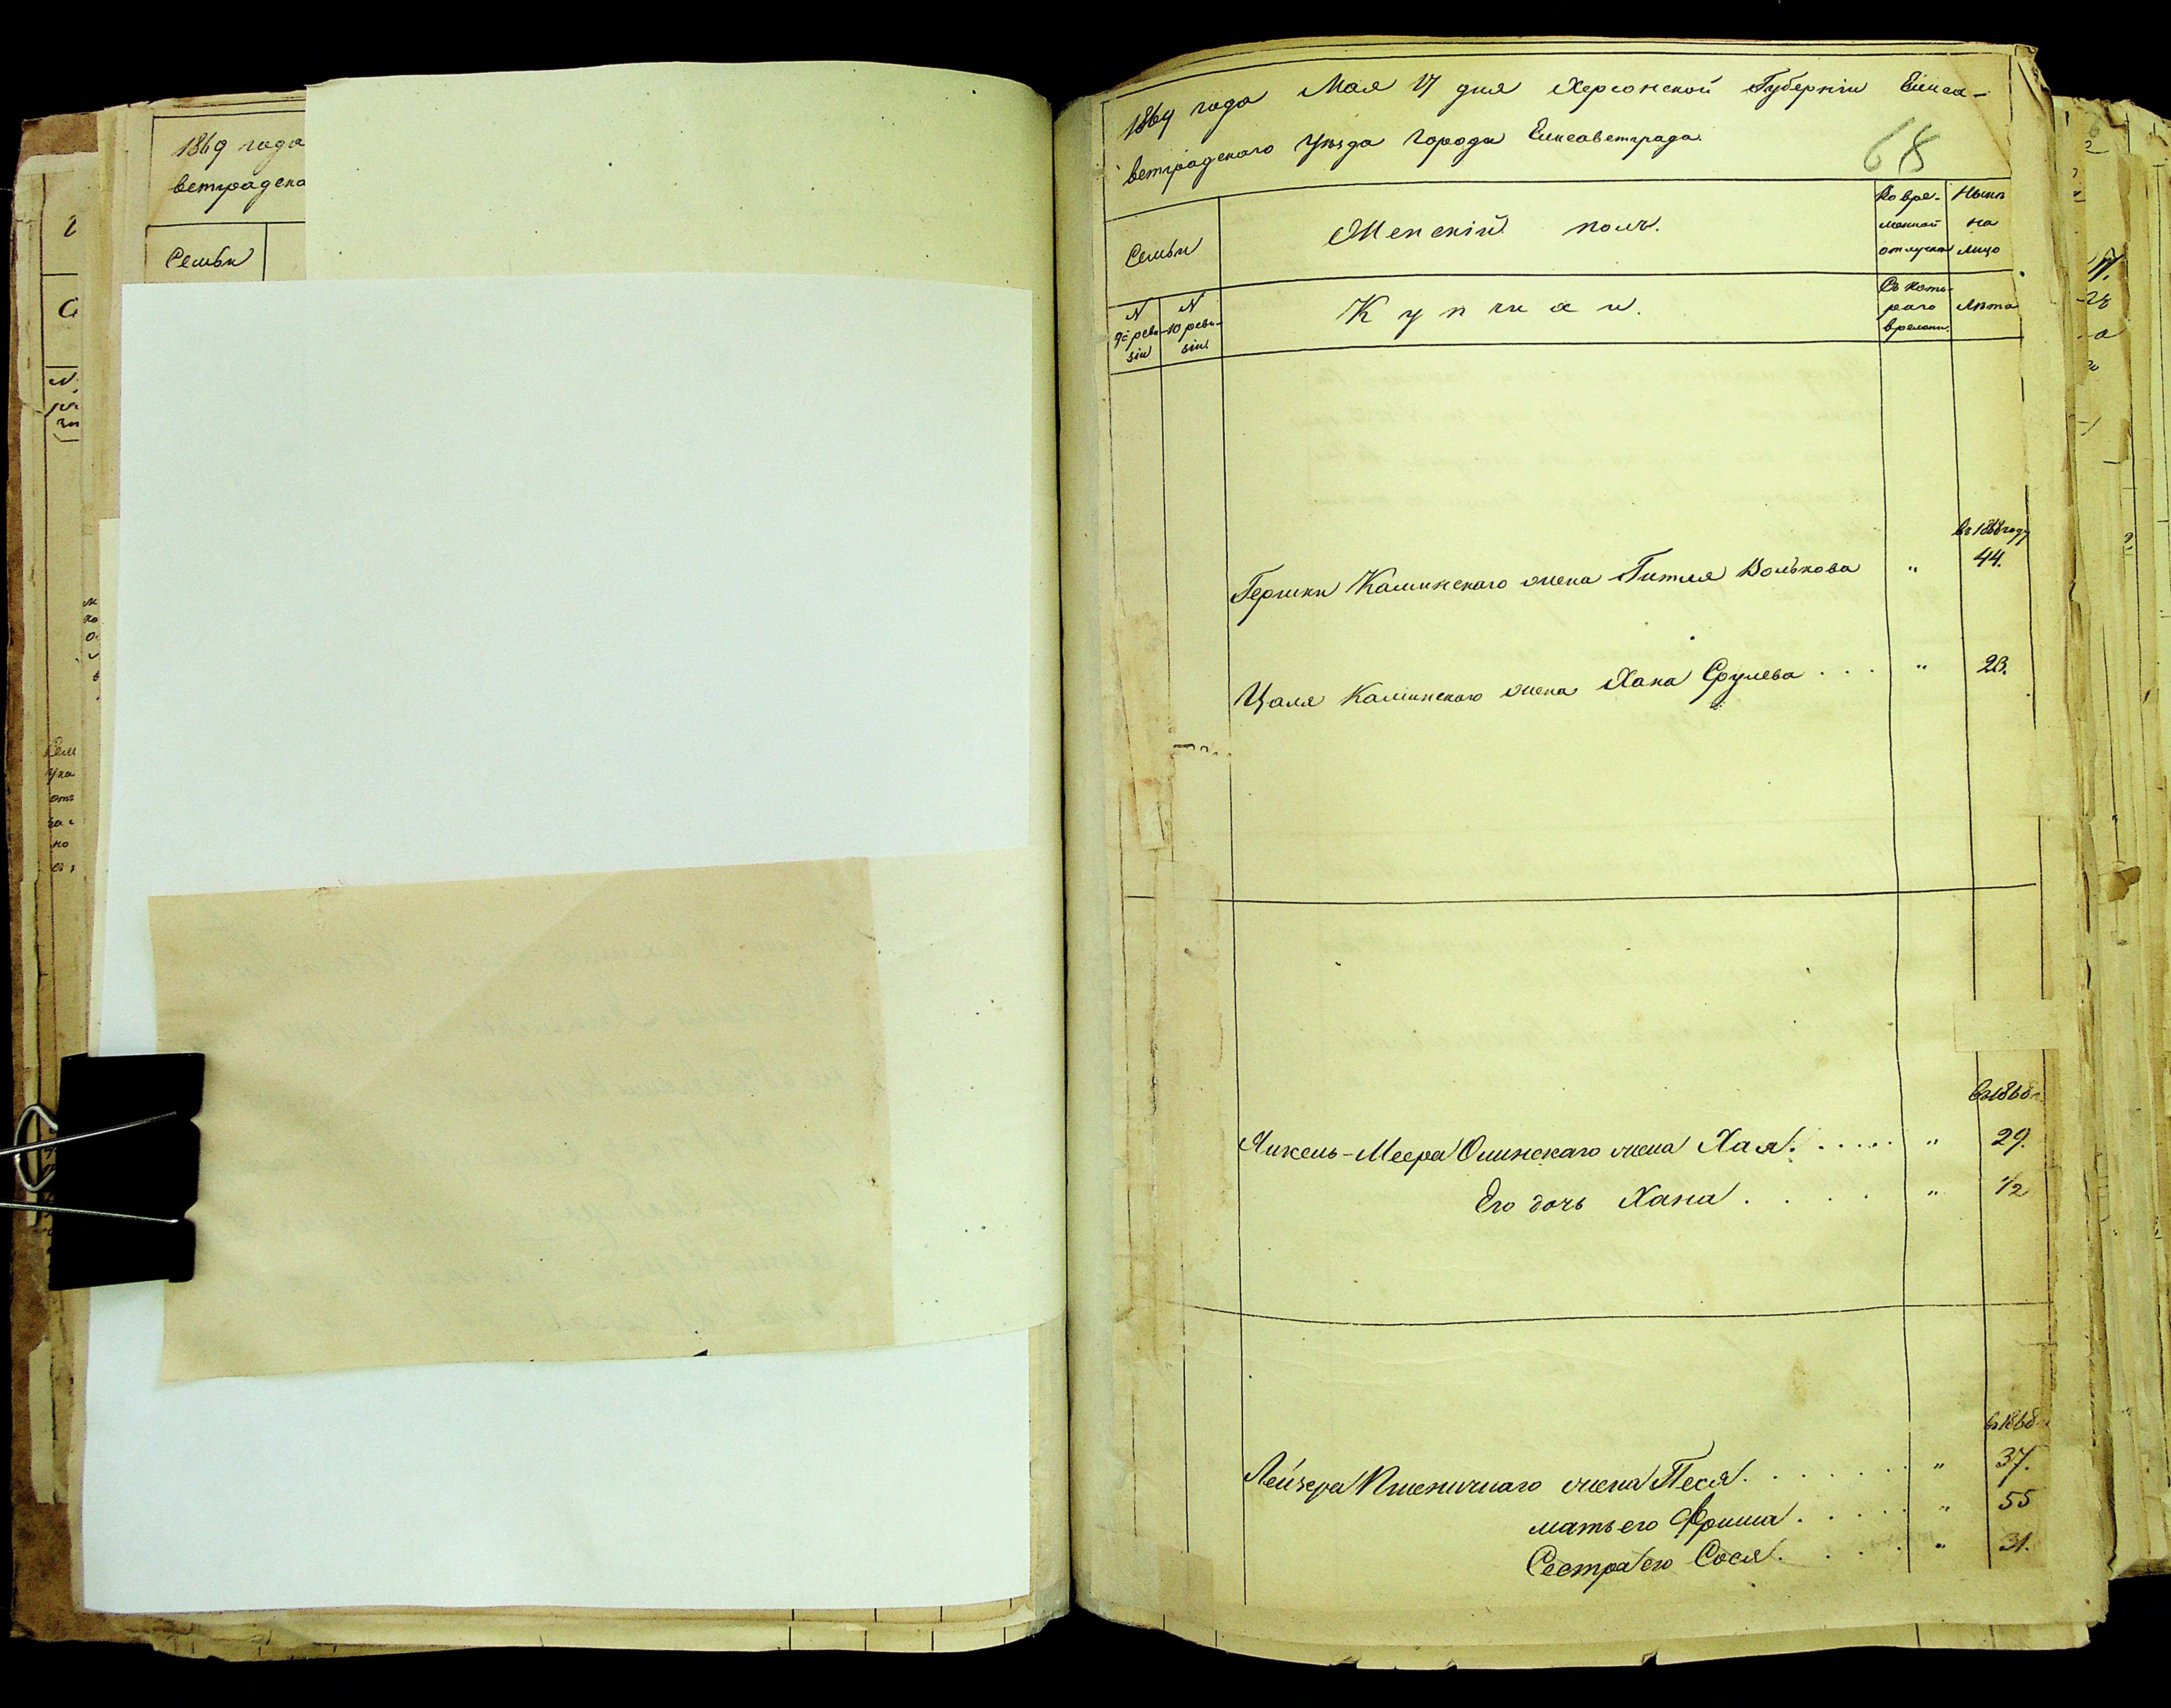 1869 года
ветрадска
Семьи
1869 года Мая 17 дня Херсонской Губерніи Елиса-
ветградскаго Уѣзда Города Елисаветграда.
68
Семьи
Женскій полъ.
Во вре-
менной
отлучкѣ
Нынѣ
на
лицо
N
9й реви-
зіи
N
10 реви-
зіи
Купчихи.
Съ кото-
раго
времени.
Лѣта
въ 1868 году
Гершки Калинскаго жена Гитля Волькова " 44.
Цаля Калинскаго жена Хана Срулева . . . " 23.
въ 1868
Янкель-Меера Олинскаго жена Хая. . . . . . " 29.
Его дочь Хана . . . . " 1/2
въ 1868
Лейзера Пшеничнаго жена Песя. . . . . . . " 37.
мать его Фрима . . . . " 55
Сестра его Сося. . . . . " 31.